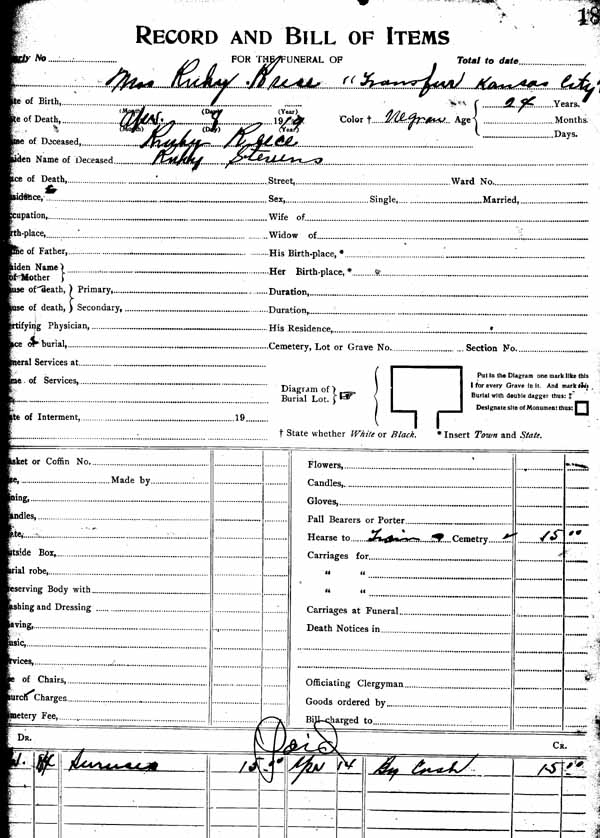 18
RECORD AND BILL OF ITEMS
rly No FOR THE FUNERAL OF Total to date
Mrs Ruby Reese "Transfer Kansas City"
te of Birth, (Month) (Day) (Year) Age 24 Years.
te of Death, Apr. 9 19 Color † Negro Months.
(Month) (Day) (Year) Days.
me of Deceased, Ruby Reece
aiden Name of Deceased Ruby Stevens
ace of Death, Street, Ward No.
sidence, Sex, Single, Married,
ccupation, Wife of
rth-place, Widow of
me of Father, His Birth-place, *
aiden Name of Mother Her Birth-place, *
use of death, Primary, Duration,
use of death, Secondary, Duration,
ertifying Physician, His Residence,
ace of burial, Cemetery, Lot or Grave No. Section No.
neral Services at
me of Services,
te of Interment, 19
Diagram of Burial Lot.
Put in the Diagram one mark like this
I for every Grave in it. And mark this
Burial with double dagger thus: ‡
Designate site of Monument thus:
† State whether White or Black. * Insert Town and State.
asket or Coffin No. Flowers,
ze, Made by Candles,
ning, Gloves,
andles, Pall Bearers or Porter
ate, Hearse to Train Cemetry 15 00
utside Box, Carriages for
rial robe, " "
eserving Body with " "
ashing and Dressing Carriages at Funeral
aving, Death Notices in
usic,
rvices,
e of Chairs, Officiating Clergyman
urch Charges Goods ordered by
metery Fee, Bill charged to
DR. Paid CR.
Services 15 00 Apr 14 By Cash 15 00